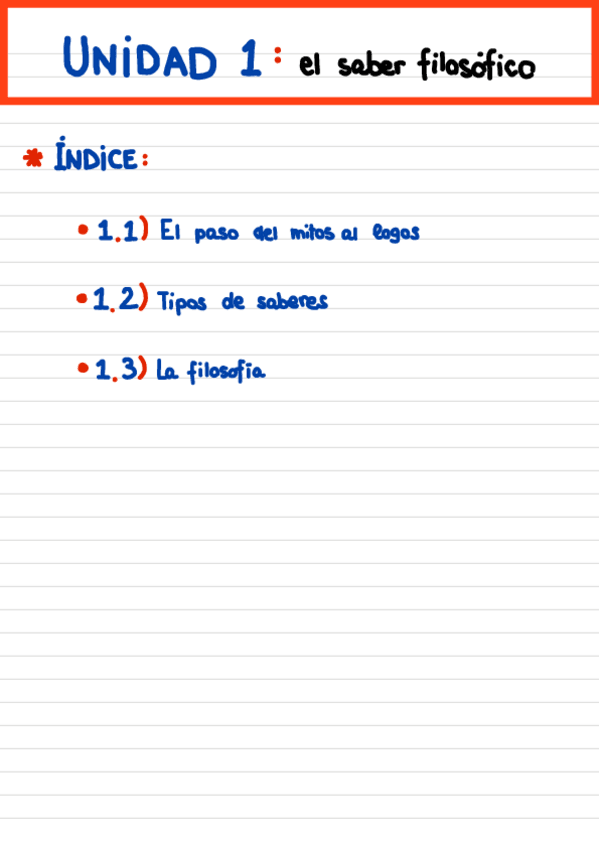 UNIDAD 1: el saber filosófico
* ÍNDICE:
• 1.1) El paso del mitos al logos
• 1.2) Tipos de saberes
• 1.3) La filosofía